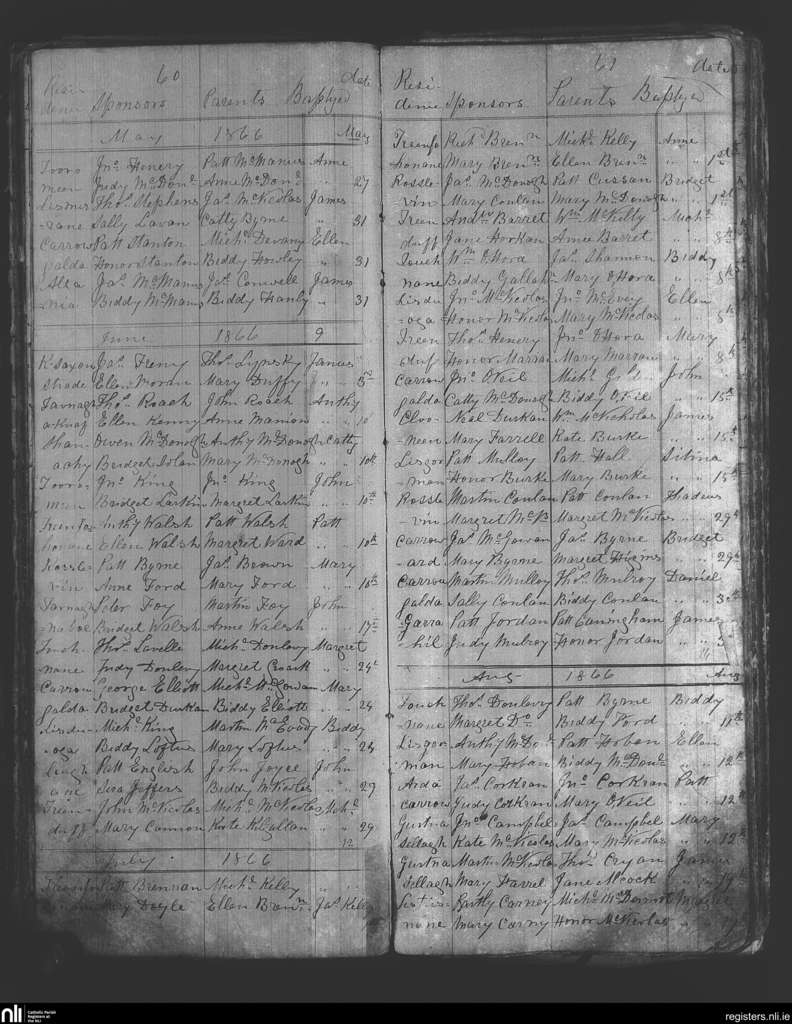 60
date
Resi
dence Sponsors Parents Baptyed
May 1866 May
Tooro Jno Henery Patt McManus Anne
meen Judy McDono Anne McDono 27
Lismir Thos Stephens Jas McNicolas James
vane Sally Lavan Catty Byrne " 31
Carrow Patt Stanton Michl Devany Ellen
galda Honor Stanton Biddy Howley " 31
Jas McManus Jas Conwell James
Biddy McManus Biddy Hanly " 31
June 1866 9
K-Saxon Jas Feeny Thos Lynsky James
Shade Ellen Moran Mary Duffy " " 5th
Tavnag Thos Roach John Roach Anthy
Ellen Kenny Anne Manion " " 10
Shan Owen McDonogh Anthy McDonogh Catty
achy Bridget Dolan Mary McDonogh " " 10th
Tooro Jno King Jno King John
men Bridget Larkin Margret Larkin " " 10th
Treenfo Anthy Walsh Patt Walsh Patt
honane Ellen Walsh Margret Ward " " 10th
Rossle Patt Byrne Jas Brown Mary
vin Anne Ford Mary Ford " " 10th
Tavnagh Peter Foy Martin Foy John
Bridget Walsh Anne Walsh " " 17th
Touch Thos Lavelle Michl Donlevy Margret
nane Judy Donlevy Margret " " 24
Carrow George Elliott Michl McGowan Mary
galda Bridget Durkan Biddy Elliott " " 24
Lisdu Michl King Martin McEvody Biddy
oga Biddy Loftus Mary Loftus " " 24
Patt English John Joyce John
Jeffers Biddy McNicolas " " 29
Treen John McNicolas Michl McNicolas Michl
duff Mary Cannon Kate Kilgallan " " 29
12
July 1866
Patt Brennan Michl Kelly " "
Mary Doyle Ellen Brenn Jas Kelly
61
date
Resi
dence Sponsors Parents Baptyed
Treenfo Richd Brenn Michl Kelly Anne
honane Mary Brenn Ellen Brenn " " 1st
Rossle Jas McDonogh Patt Cussan Bridget
vin Mary Conlan Mary McDonogh " " 1st
Treen Andw Barret Wm McKelly Michl
duff Jane Horkan Anne Barret " " 8th
Touch Wm OHora Jas Shannon Biddy
nane Biddy Gallah Mary OHora " " 8th
Lisdu Jno McNicolas Jno McEvey Ellen
oga Honor McNicolas Mary McNicolas " " 8th
Treen Thos Henery Jno OHora Mary
duf Honor Marran Mary Marran " " 8th
Carrow Jno ONeil Michl John
galda Catty McDonogh Biddy ONeil " " 15th
Cloo Neal Durkan Wm McNicholas James
neen Mary Farrell Kate Burke " " 15th
Lisgor Patt Mulloy Patt Hall Sibina
man Honor Burke Mary Burke " " 15th
Rossle Martin Conlan Patt Conlan Thadeus
vin Margret McN Margret McNicolas " " 29th
Carrow Jas McGowan Jas Byrne Bridget
ard Mary Byrne Margret Higins " " 29th
Carrow Martin Mulloy Thos Mulroy Daniel
galda Sally Conlan Biddy Conlan " " 30th
Garra Patt Jordan Patt Cuningham James
hil Judy Mulroy Honor Jordan " "
Aug 1866 Aug
Touch Thos Donlevy Patt Byrne Biddy
nane Margret Do Biddy Ford " " 11th
Lisgor Anthy McDo Patt Hoban Ellen
man Mary Hoban Biddy McDono " " 12th
Arda Jas Corkran Jno Corkran Patt
carrow Judy Corkran Mary ONeil " " 12th
Gurtna Jno Campbel Jas Campbel Mary
sillagh Kate McNicolas Mary McNicolas " " 12th
Gurtna Martin McNicolas Thos Cryan James
sillagh Mary Harrel Jane Alcock " " 19th
Bartly Carney Michl McDermot
nane Mary Carny Honor McNicolas " "
nli
Catholic Parish
Registers at
the NLI
registers.nli.ie